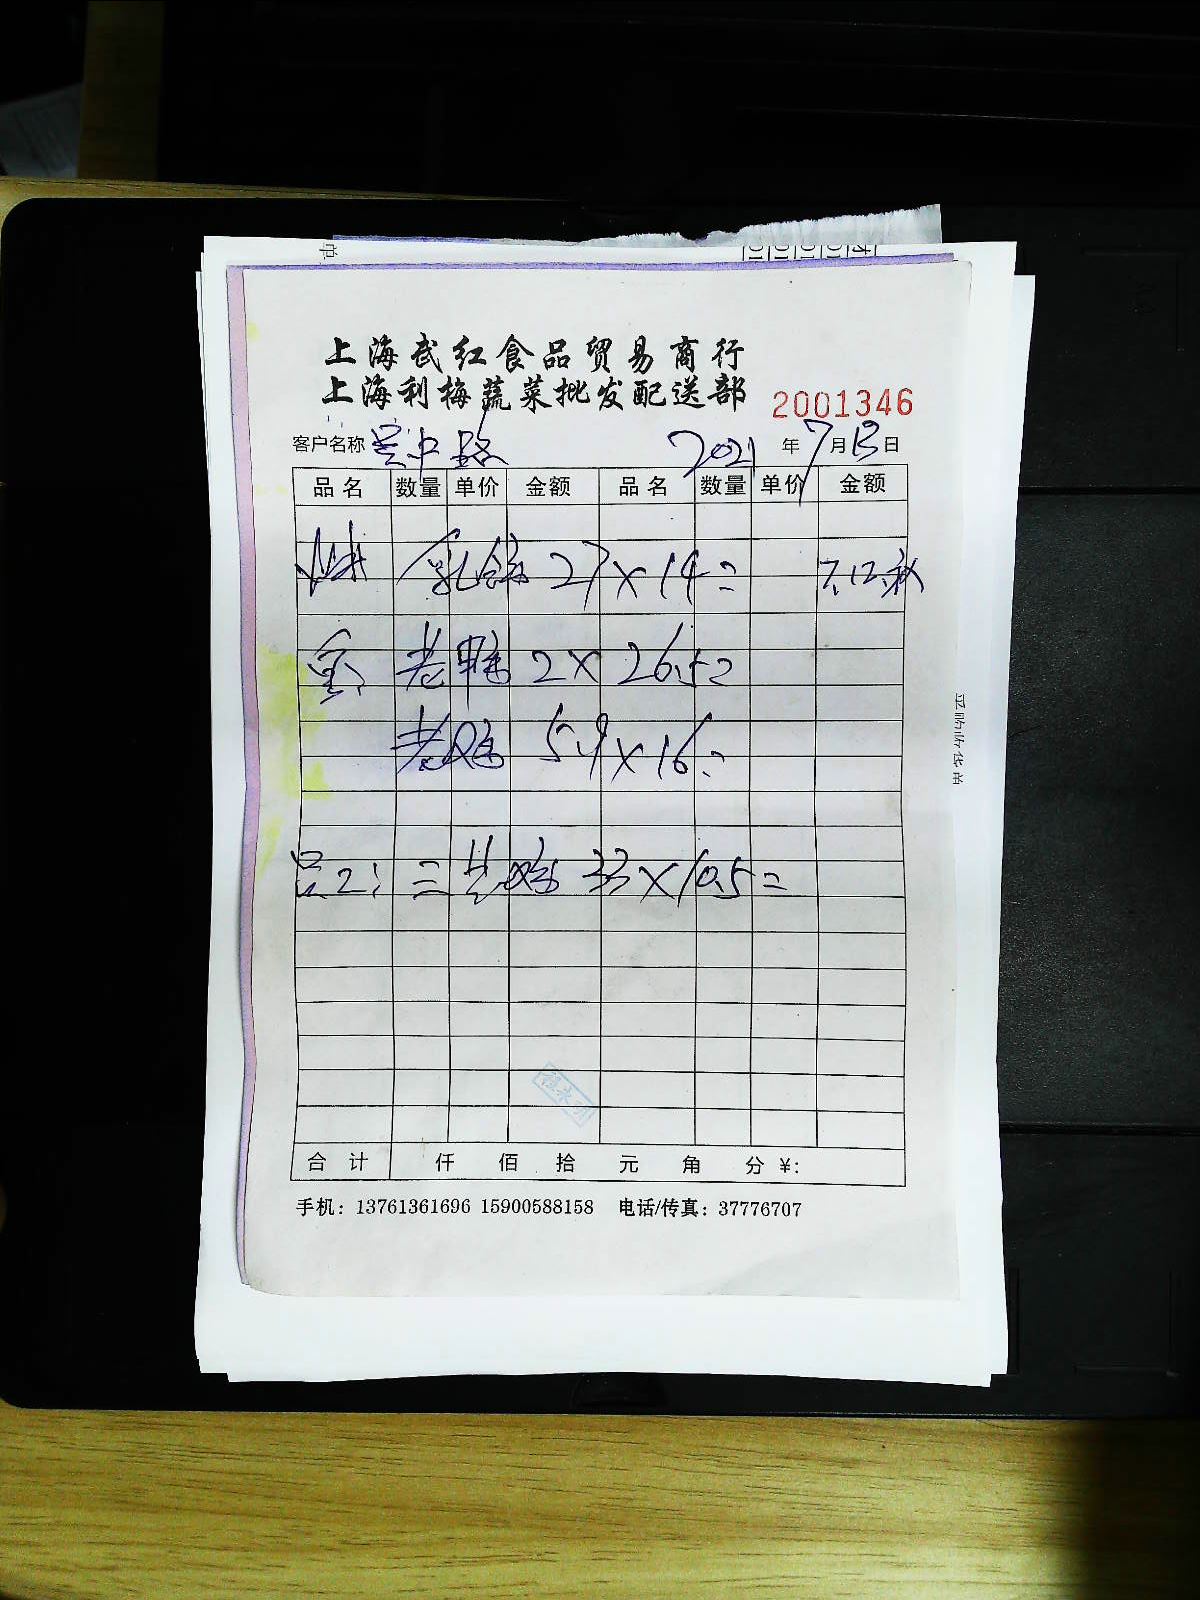 上海武红食品贸易商行
上海利梅蔬菜批发配送部
2001346
客户名称 吴中路 2021年7月13日
品名 数量 单价 金额 品名 数量 单价 金额
乳鸽 27×14=
老鸭 2×26.5=
老鸡 5.9×16=
三黄鸡 33×10.5=
合计 仟 佰 拾 元 角 分 ¥:
手机: 13761361696 15900588158 电话/传真: 37776707